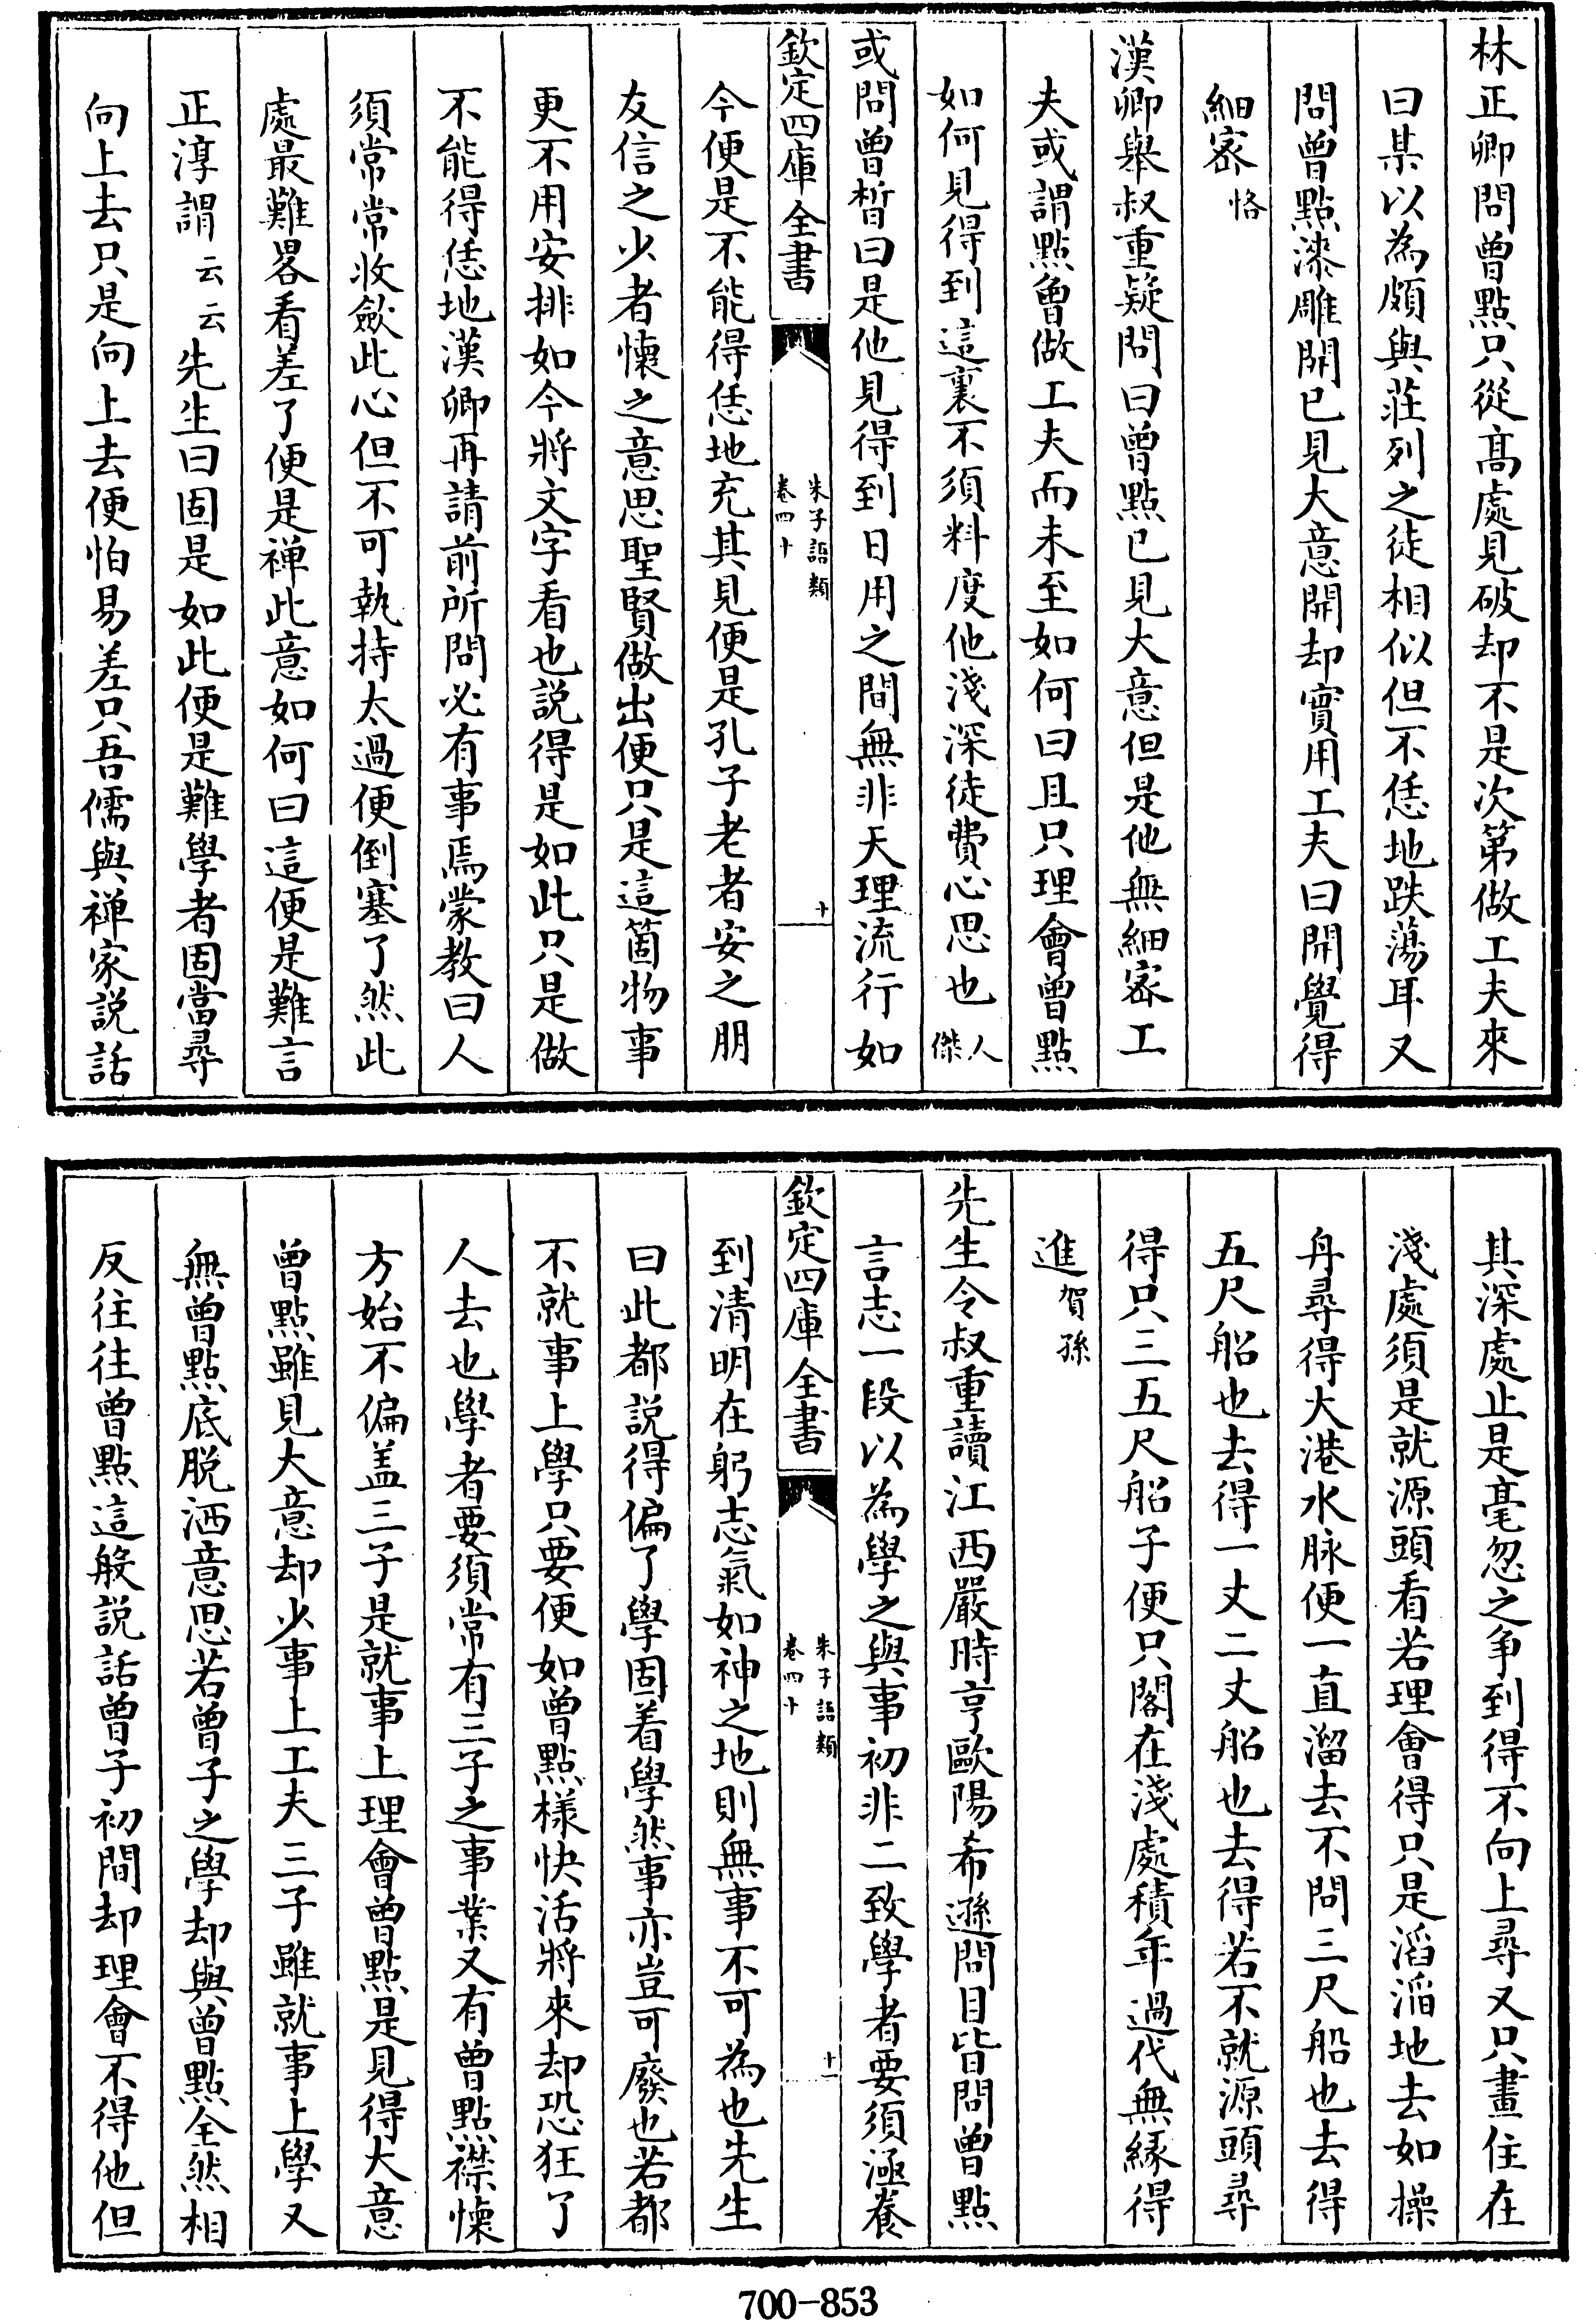 林正卿問曾點只從高處見破却不是次第做工夫來
曰某以為頗與莊列之徒相似但不恁地跌蕩耳又
問曾點漆雕開已見大意開却實用工夫曰開覺得
細宻恪
漢卿舉叔重疑問曰曾點已見大意但是他無細宻工
夫或謂點曾做工夫而未至如何曰且只理會曾點
如何見得到這裏不須料度他淺深徒費心思也人傑
或問曾晳曰是他見得到日用之間無非天理流行如
欽定四庫全書
朱子語類
卷四十
十
今便是不能得恁地充其見便是孔子老者安之朋
友信之少者懷之意思聖賢做出便只是這箇物事
更不用安排如今將文字看也説得是如此只是做
不能得恁地漢卿再請前所問必有事焉蒙教曰人
須常常收斂此心但不可執持太過便倒塞了然此
處最難畧看差了便是禪此意如何曰這便是難言
正淳謂云云先生曰固是如此便是難學者固當尋
向上去只是向上去便怕易差只吾儒與禪家説話
其深處止是毫忽之争到得不向上尋又只畫住在
淺處須是就源頭看若理會得只是滔滔地去如操
舟尋得大港水脉便一直溜去不問三尺船也去得
五尺船也去得一丈二丈船也去得若不就源頭尋
得只三五尺船子便只閣在淺處積年過代無縁得
進賀孫
先生令叔重讀江西嚴時亨歐陽希遜問目皆問曾點
言志一段以為學之與事初非二致學者要須涵養
欽定四庫全書
朱子語類
卷四十
十一
到清明在躬志氣如神之地則無事不可為也先生
曰此都説得偏了學固着學然事亦豈可廢也若都
不就事上學只要便如曾點樣快活將來却恐狂了
人去也學者要須常有三子之事業又有曾點襟懷
方始不偏盖三子是就事上理會曾點是見得大意
曾點雖見大意却少事上工夫三子雖就事上學又
無曾點底脱洒意思若曾子之學却與曾點全然相
反往往曾點這般説話曾子初間却理會不得他但
700-853